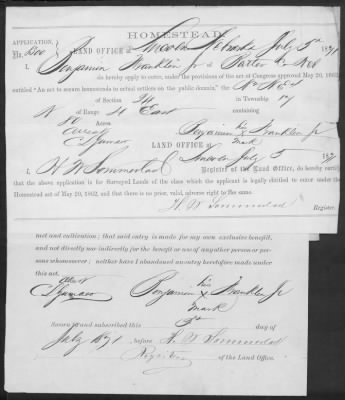 HOMESTEAD.
APPLICATION, No.
LAND OFFICE at Lincoln Nebraska July 5th 1871
I, Benjamin Franklin Jr
do hereby apply to enter, under the provisions of the act of Congress approved May 20, 1862,
entitled "An act to secure homesteads to actual settlers on the public domain," the
of Section 34 in Township 17
N of Range 4 East
80 Acres
Attest
Benjamin his x mark Franklin Jr
LAND OFFICE at Lincoln July 5 187
I, H. W. Sommerlad Register of the Land Office, do hereby certify
that the above application is for Surveyed Lands of the class which the applicant is legally entitled to enter under the
Homestead act of May 20, 1862, and that there is no prior, valid, adverse right to the same.
H. W. Sommerlad
Register.
ment and cultivation; that said entry is made for my own exclusive benefit,
and not directly nor indirectly for the benefit or use of any other person or per-
sons whomsoever; neither have I abandoned an entry heretofore made under
this act.
Attest
Benjamin his x mark Franklin Jr
Sworn and subscribed this 5th day of
July 1871, before H. W. Sommerlad
Register of the Land Office.